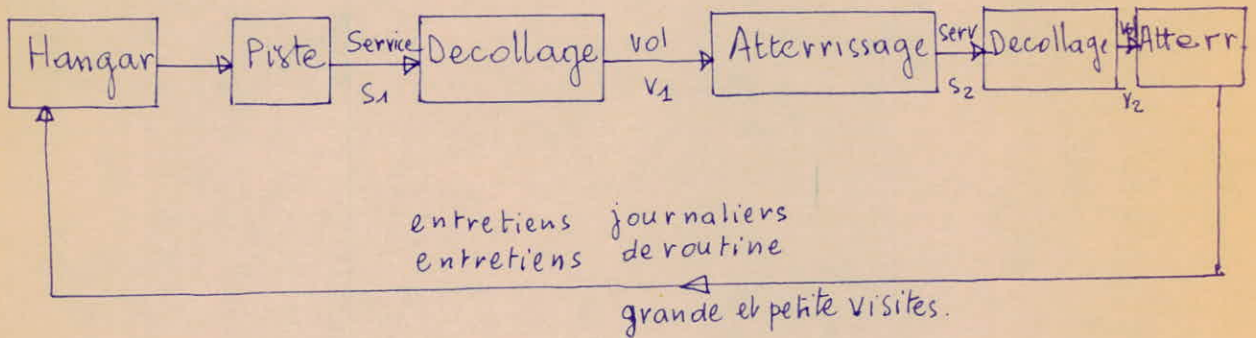 Hangar Piste Service Decollage vol Atterrissage Serv Decollage vol Atterr
S1 V1 S2 V2
entretiens journaliers
entretiens de routine
grande et petite visites.